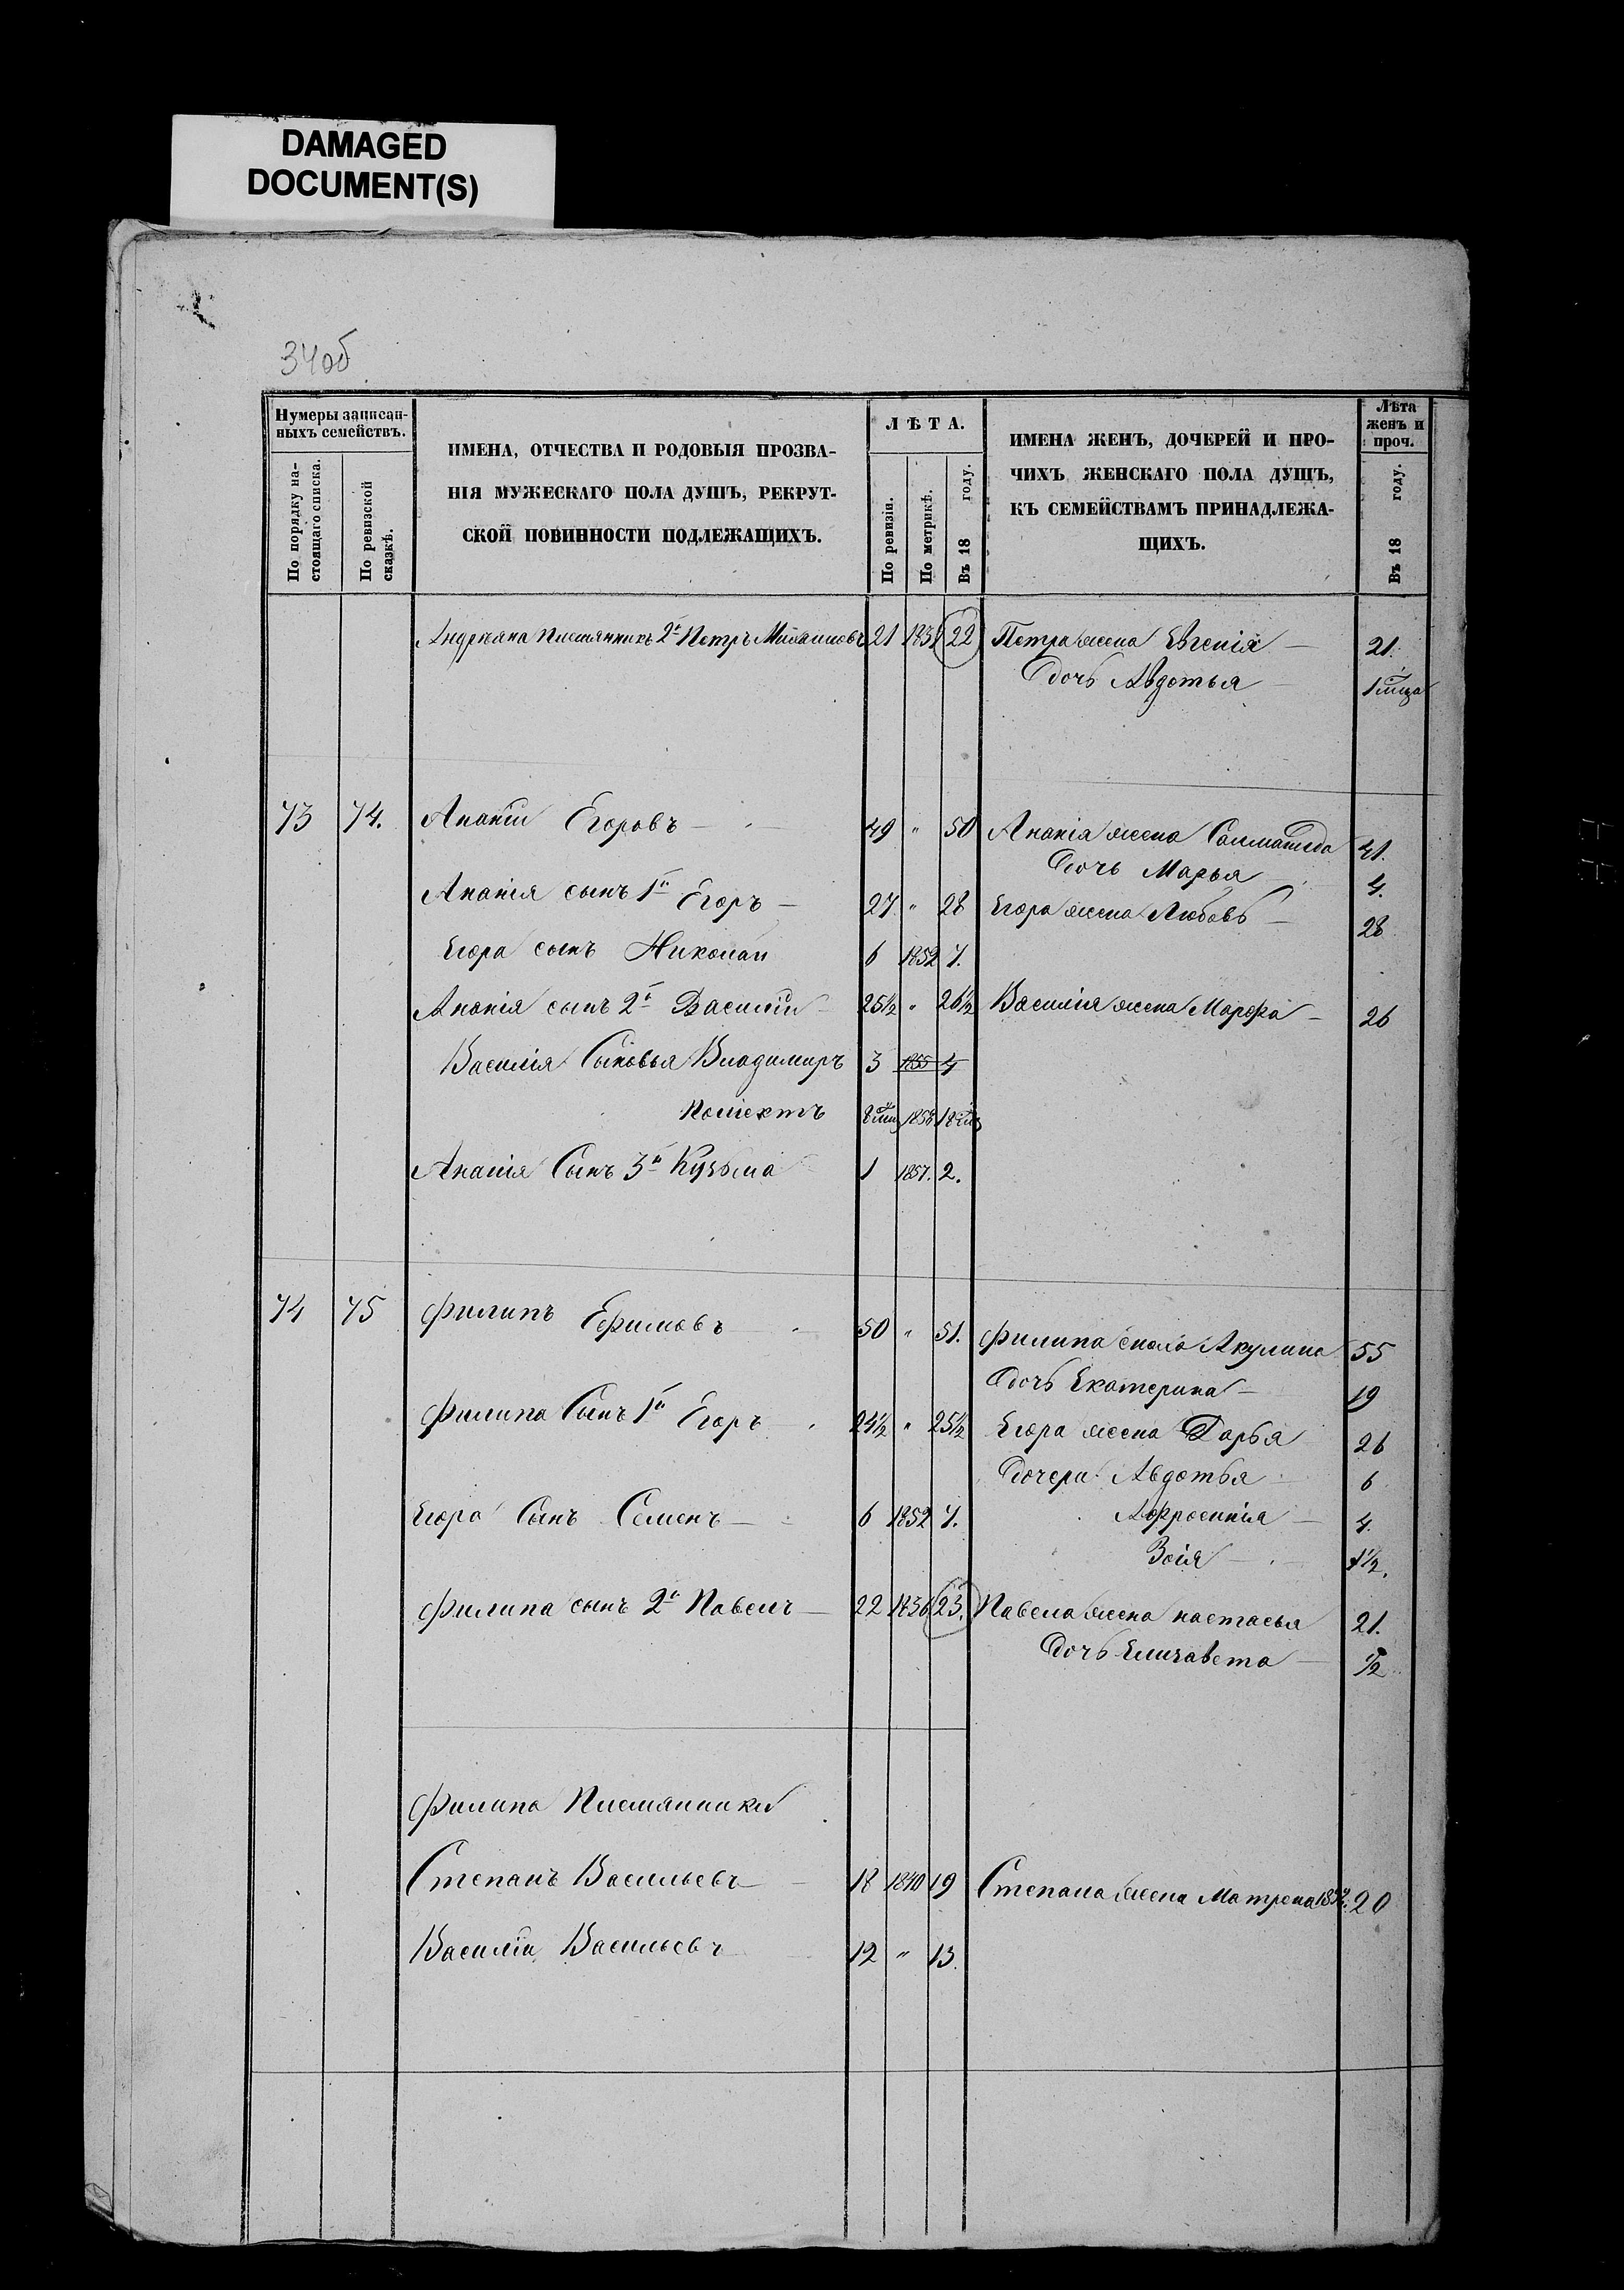 DAMAGED
DOCUMENT(S)
34об
Нумеры записан-
ныхъ семействъ.
По порядку на-
стоящаго списка.
По ревизской
сказкѣ.
ИМЕНА, ОТЧЕСТВА И РОДОВЫЯ ПРОЗВА-
НІЯ МУЖЕСКАГО ПОЛА ДУШЪ, РЕКРУТ-
СКОЙ ПОВИННОСТИ ПОДЛЕЖАЩИХЪ.
ЛѢТА.
По ревизіи.
По метрикѣ.
Въ 18 году.
ИМЕНА ЖЕНЪ, ДОЧЕРЕЙ И ПРО-
ЧИХЪ ЖЕНСКАГО ПОЛА ДУШЪ,
КЪ СЕМЕЙСТВАМЪ ПРИНАДЛЕЖА-
ЩИХЪ.
Лѣта
женъ и
проч.
Въ 18 году.
Андреяна племянникъ 2й Петръ 21 22 Петра жена Евгенія — 21.
Дочь Авдотья —
73 74. Ананій Егоровъ — 49 " 50 Ананія жена 41.
Дочь Марья 4.
Ананія сынъ 1й Егоръ — 27 " 28 Егора жена Любовь — 28
Егора сынъ Николай 6 1852 7.
Ананія сынъ 2й Василій 25½ " 26½ Василія жена Марфа — 26
Василія Сыновья Владимиръ 3 1855 4
Поліектъ 1858
Ананія Сынъ 3й Кузьма 1 1857. 2.
74 75 Филипъ Ефимовъ — 50 " 51. Филипа Акулина 55
Дочь Екатерина — 19
Филипа Сынъ 1й Егоръ — 24½ " 25½ Егора жена Дарья 26
Дочери Авдотья 6
Егора Сынъ Семенъ — 6 1852 7. Афросинія — 4.
Зоія — 1½.
Филипа сынъ 2й Павелъ — 22 1836 23. Павела жена настасья 21.
Дочь Елизавета — ½
Филипа Племянники
Степанъ Васильевъ 18 1840 19 Степана жена Матрена 20
Василій Васильевъ 12 " 13.